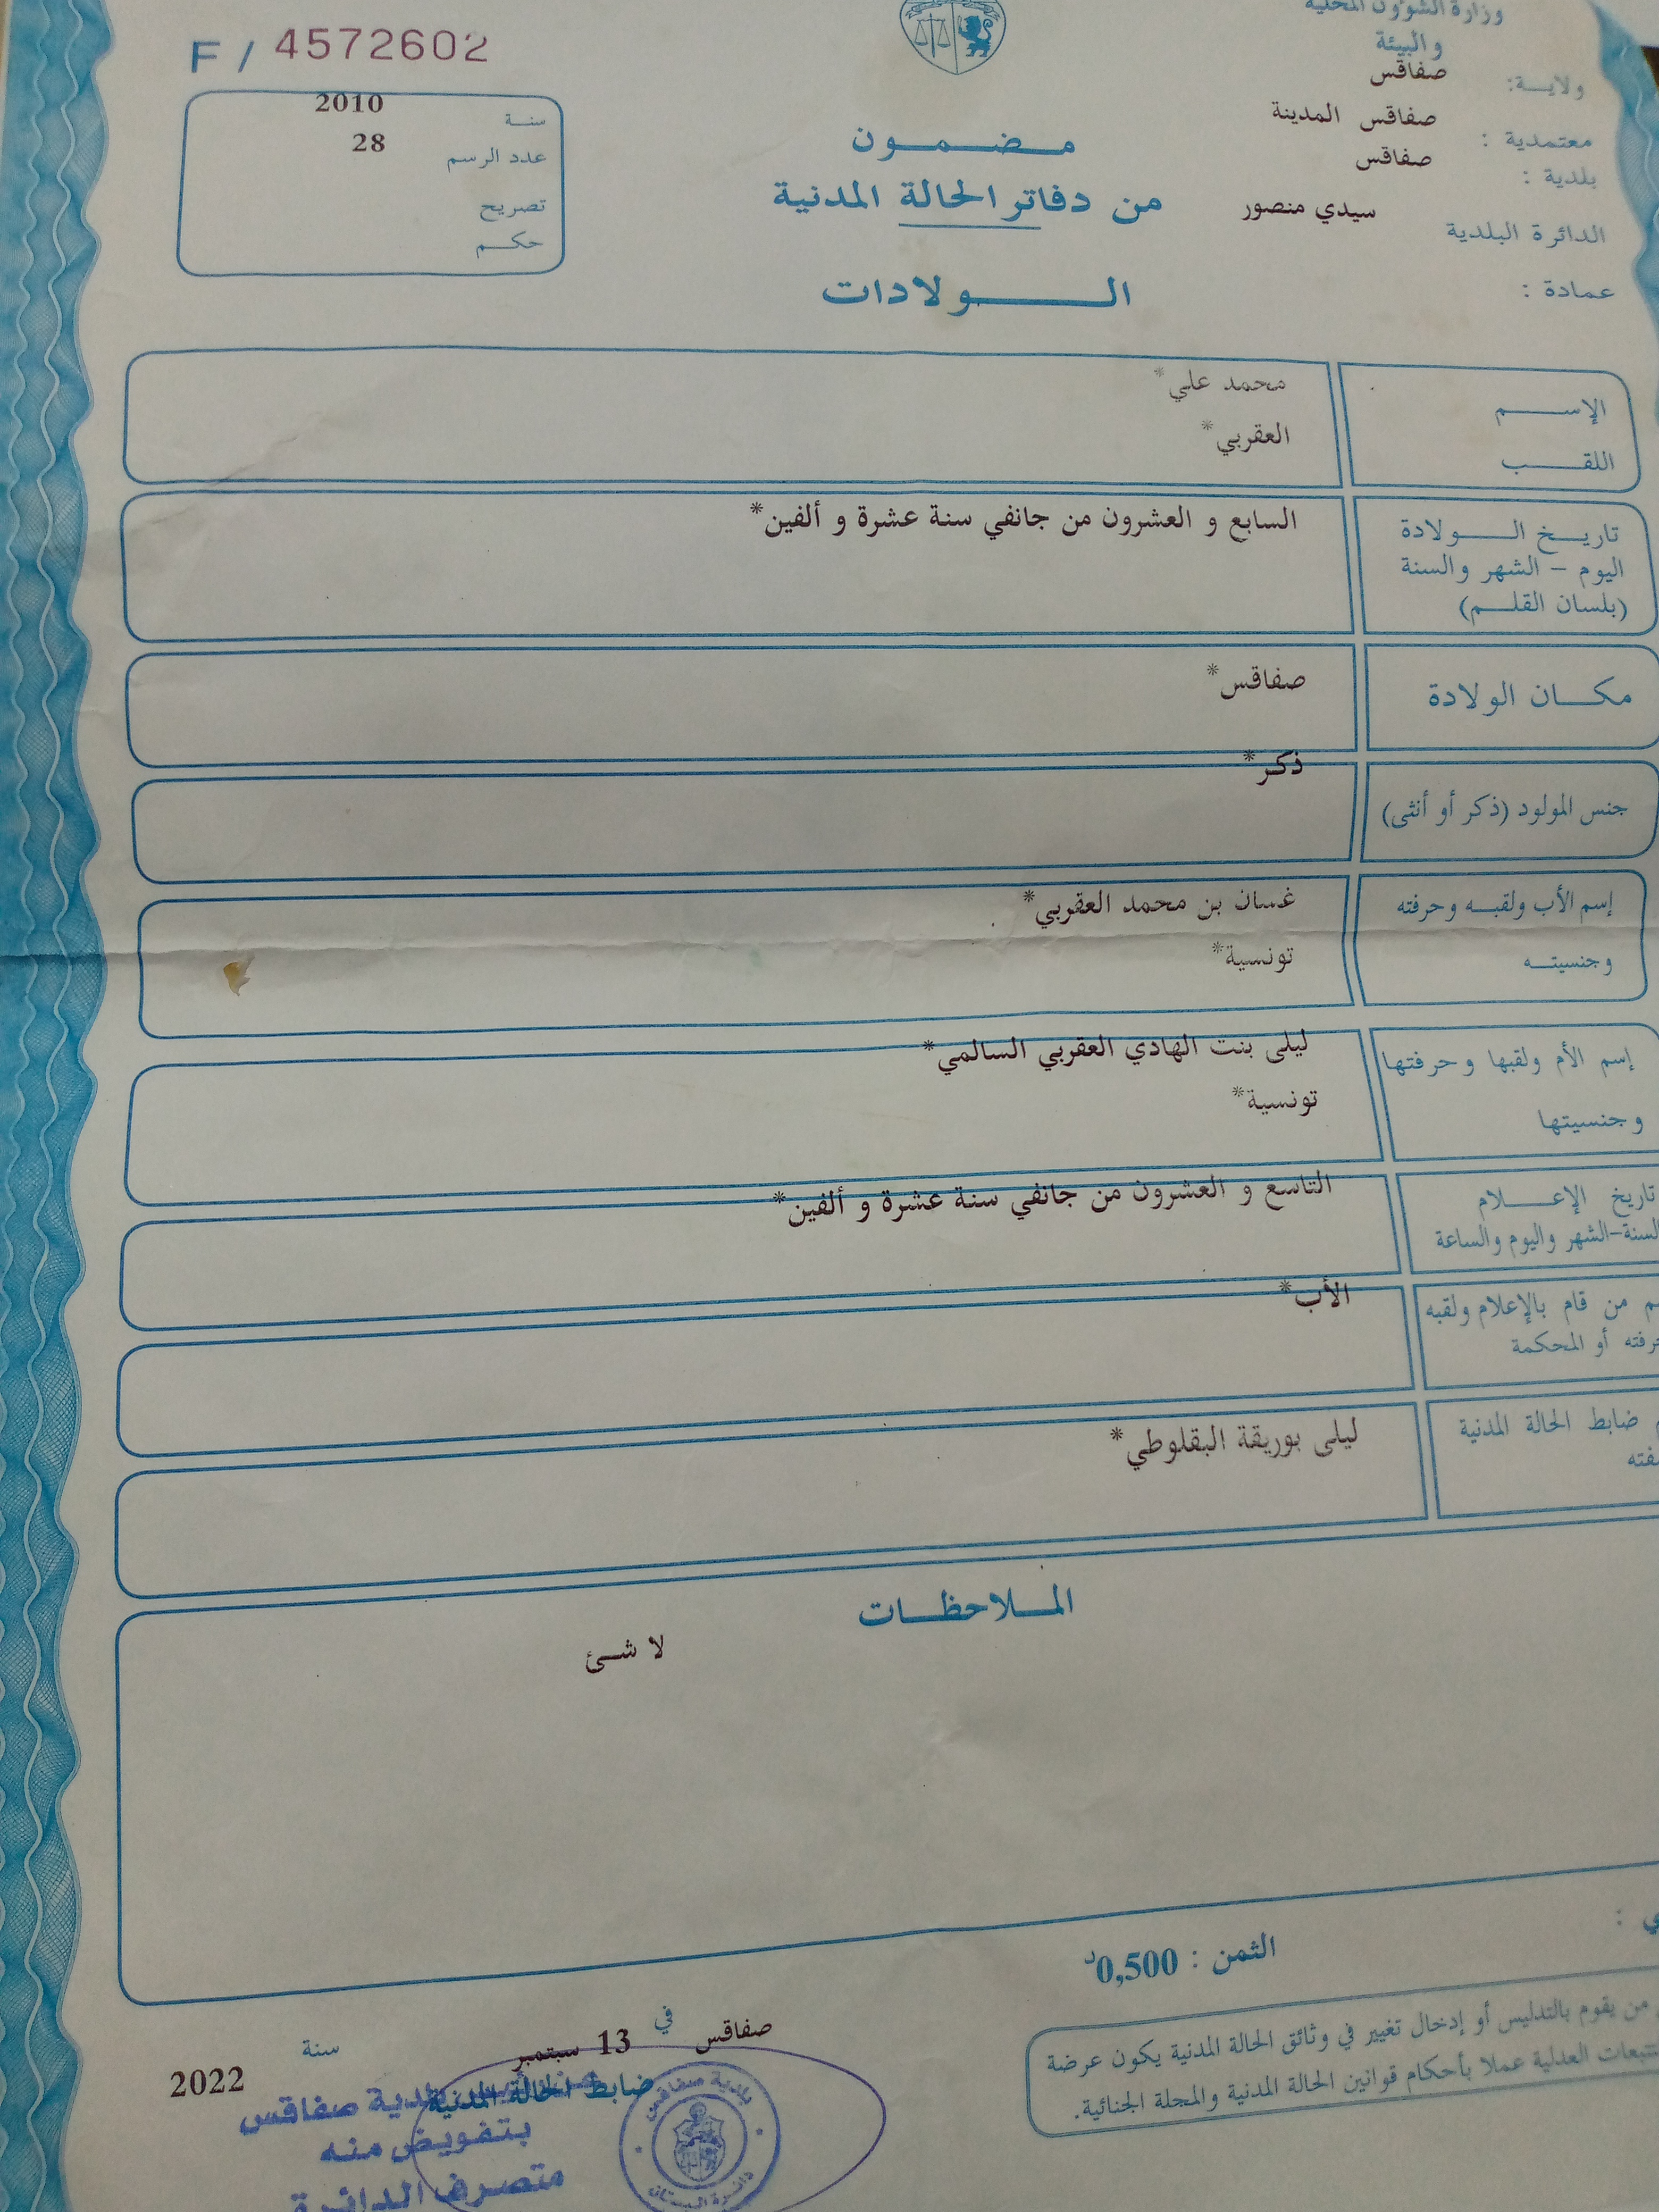 وزارة الشؤون المحلية
والبيئة
ولاية: صفاقس
معتمدية : صفاقس المدينة
بلدية : صفاقس
الدائرة البلدية سيدي منصور
عمادة :
F / 4572602
سنة 2010
عدد الرسم 28
تصريح
حكم
مضمون
من دفاتر الحالة المدنية
الولادات
الإسم محمد علي*
اللقب العقربي*
تاريخ الولادة السابع و العشرون من جانفي سنة عشرة و ألفين*
اليوم - الشهر والسنة
(بلسان القلم)
مكان الولادة صفاقس*
جنس المولود (ذكر أو أنثى) ذكر*
إسم الأب ولقبه وحرفته غسان بن محمد العقربي*
وجنسيته تونسية*
إسم الأم ولقبها وحرفتها ليلى بنت الهادي العقربي السالمي*
وجنسيتها تونسية*
تاريخ الإعلام التاسع و العشرون من جانفي سنة عشرة و ألفين*
السنة-الشهر واليوم والساعة
من قام بالإعلام ولقبه الأب*
أو المحكمة
ضابط الحالة المدنية ليلى بوريقة البقلوطي*
الملاحظات
لا شئ
الثمن : 0,500د
من يقوم بالتدليس أو إدخال تغيير في وثائق الحالة المدنية يكون عرضة
العدلية عملا بأحكام قوانين الحالة المدنية والمجلة الجنائية.
صفاقس في 13 سبتمبر سنة 2022
ضابط الحالة المدنية
بلدية صفاقس
بتفويض منه
متصرف الدائرة
بلدية صفاقس
دائرة البستان